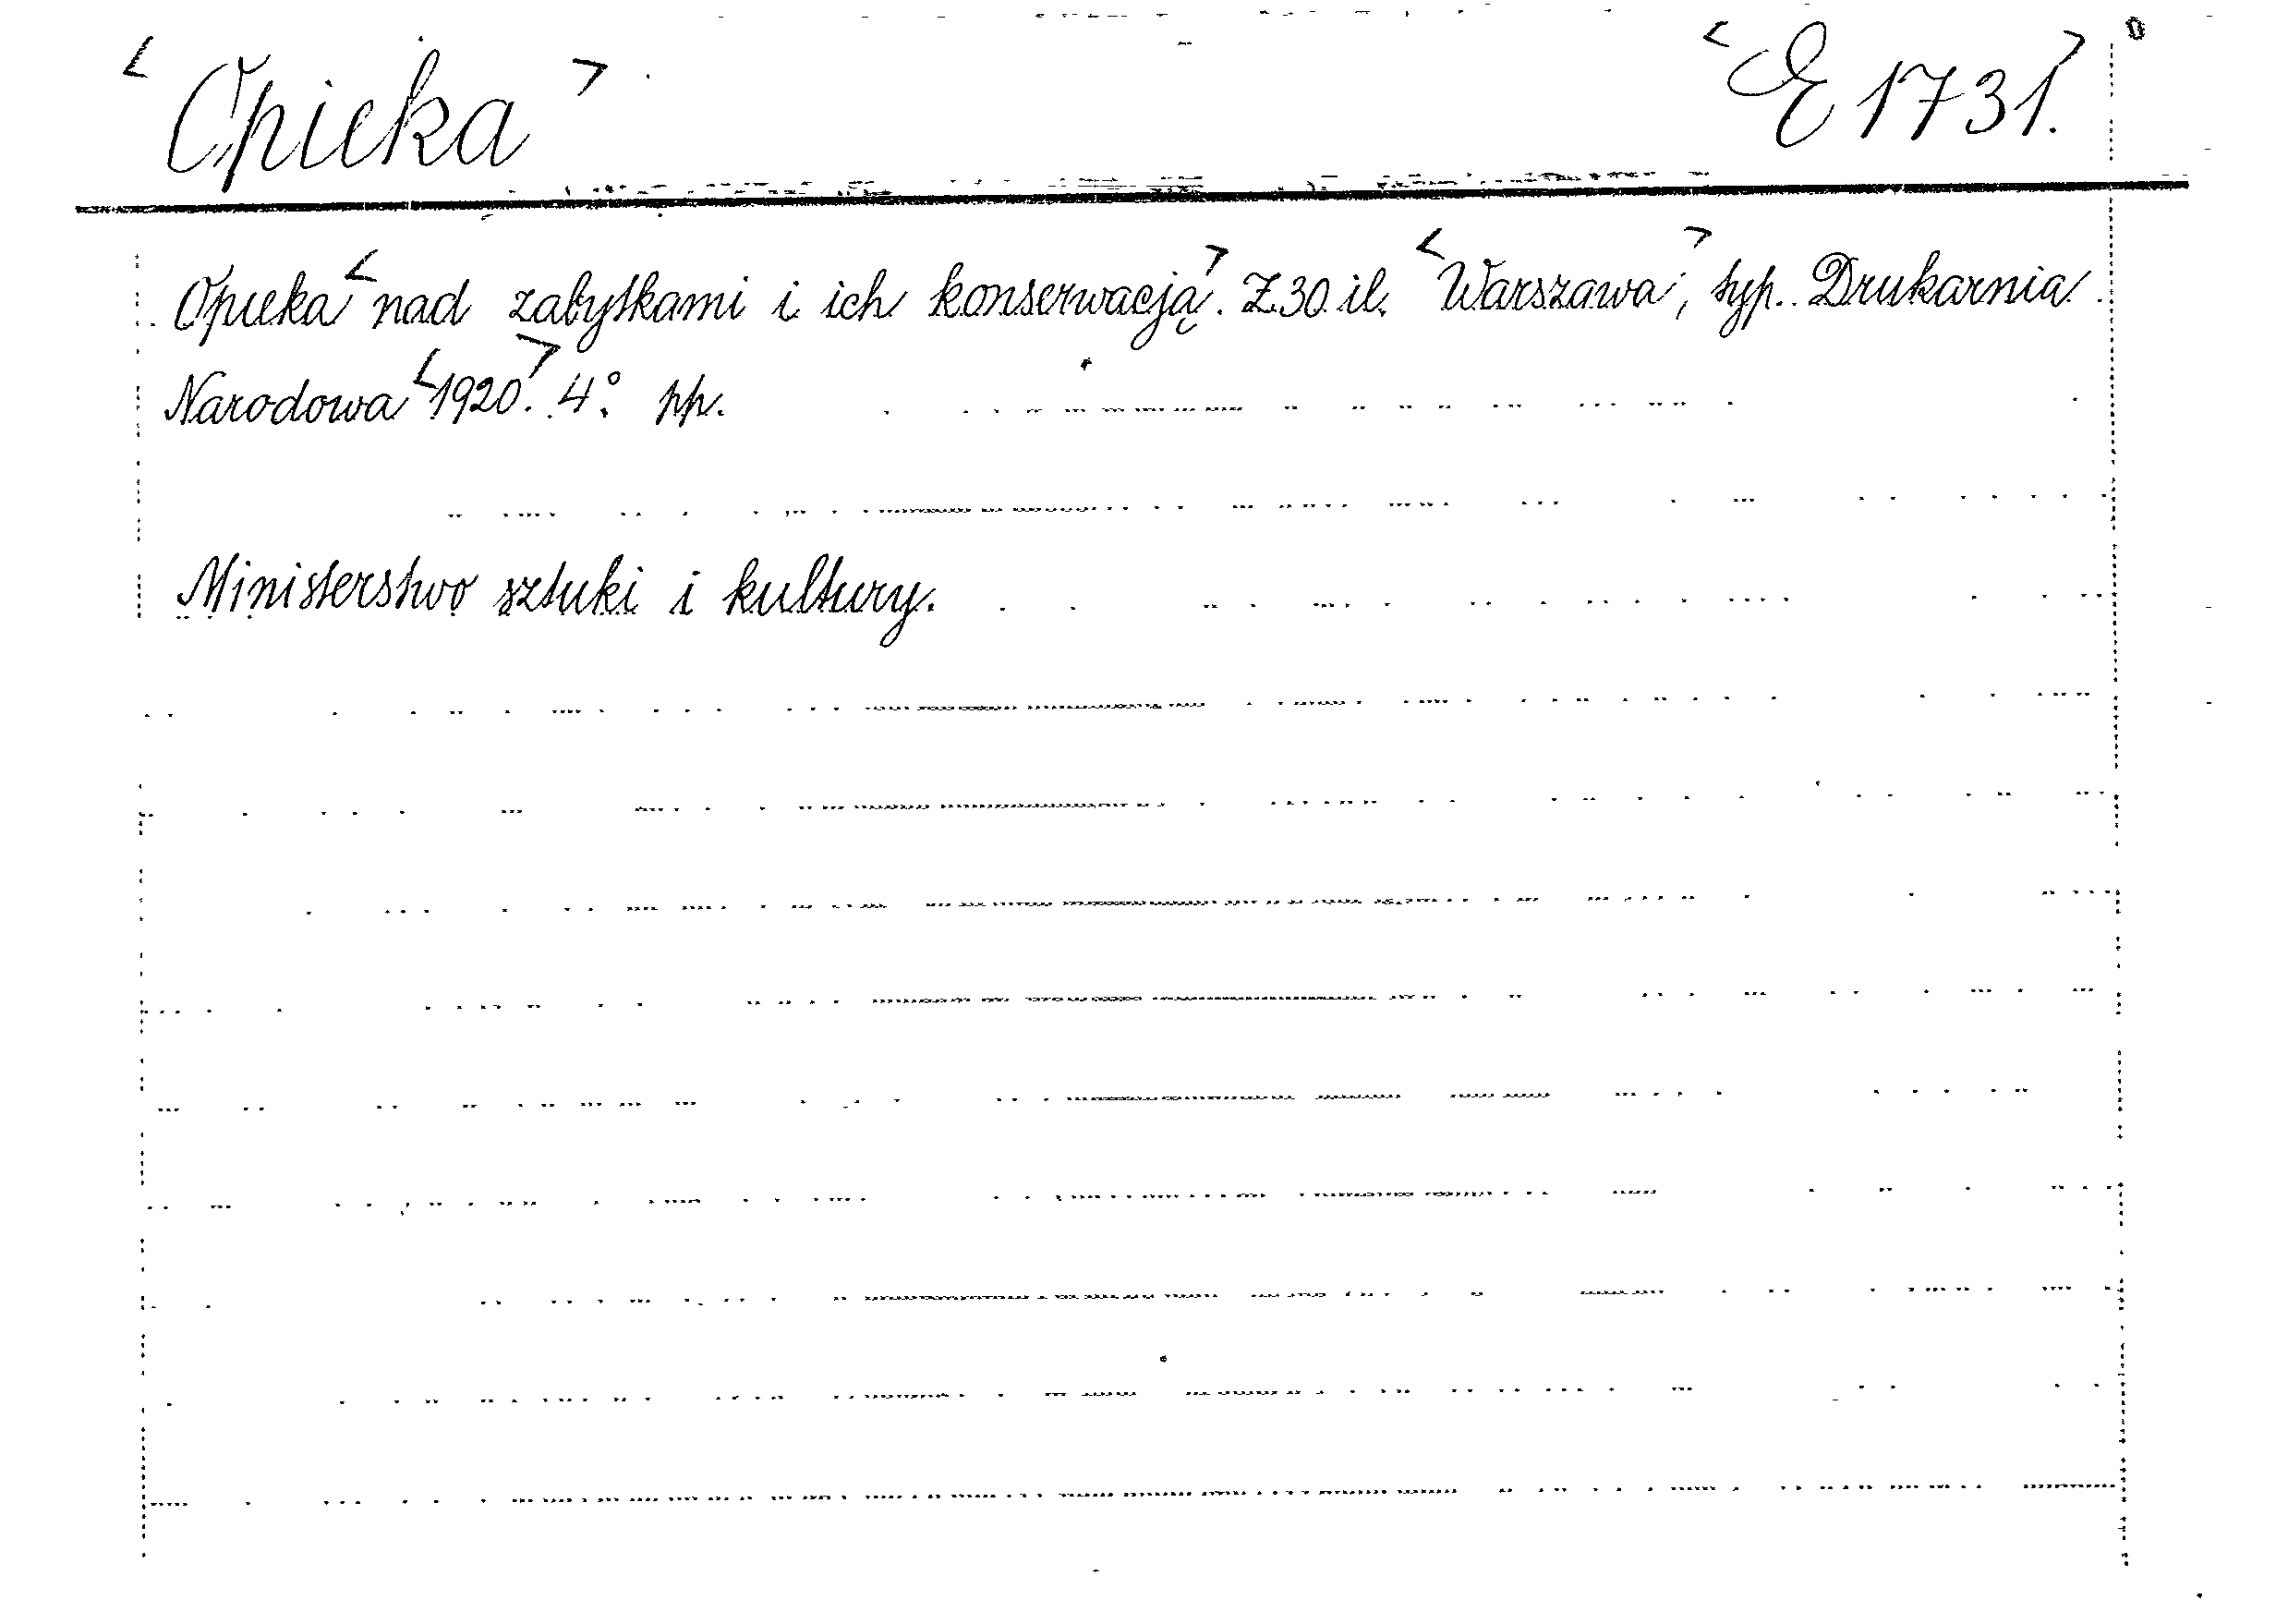 <Opieka> <E 1731.>
Opieka <nad zabytkami i ich konserwacją>. Z 30 il. <Warszawa>, typ. Drukarnia
Narodowa <1920>. 4° pp.
Ministerstwo sztuki i kultury.